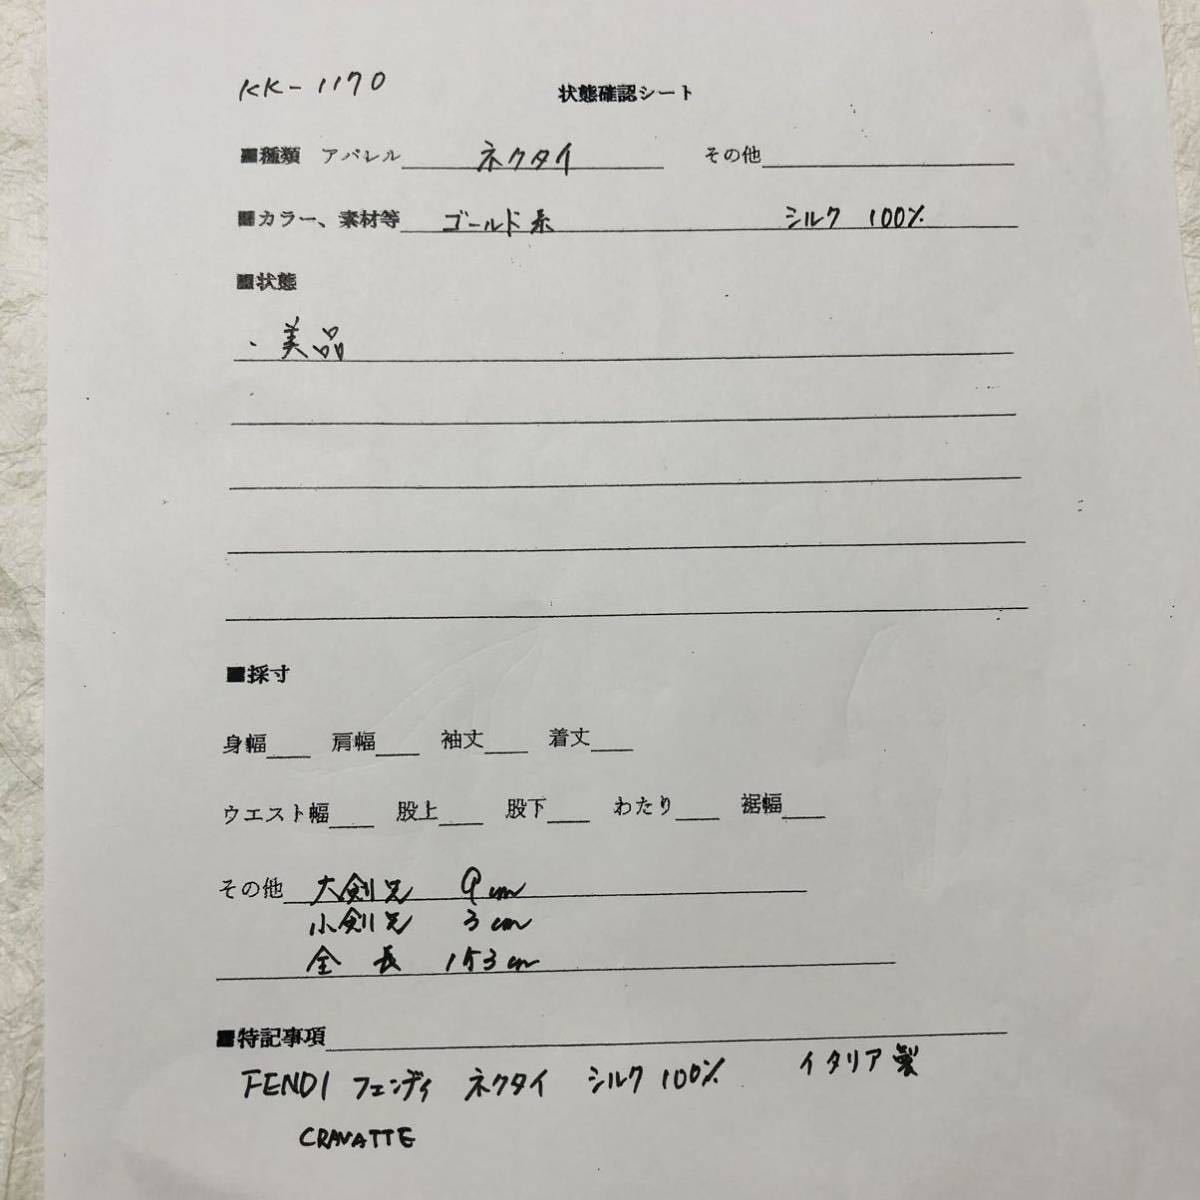 KK-1170 状態確認シート
■種類 アパレル ネクタイ その他
■カラー、素材等 ゴールド系 シルク 100%
■状態
・美品
■採寸
身幅 肩幅 袖丈 着丈
ウエスト幅 股上 股下 わたり 裾幅
その他 大剣先 9cm
小剣先 3cm
全長 153cm
■特記事項
FENDI フェンディ ネクタイ シルク 100% イタリア製
CRAVATTE